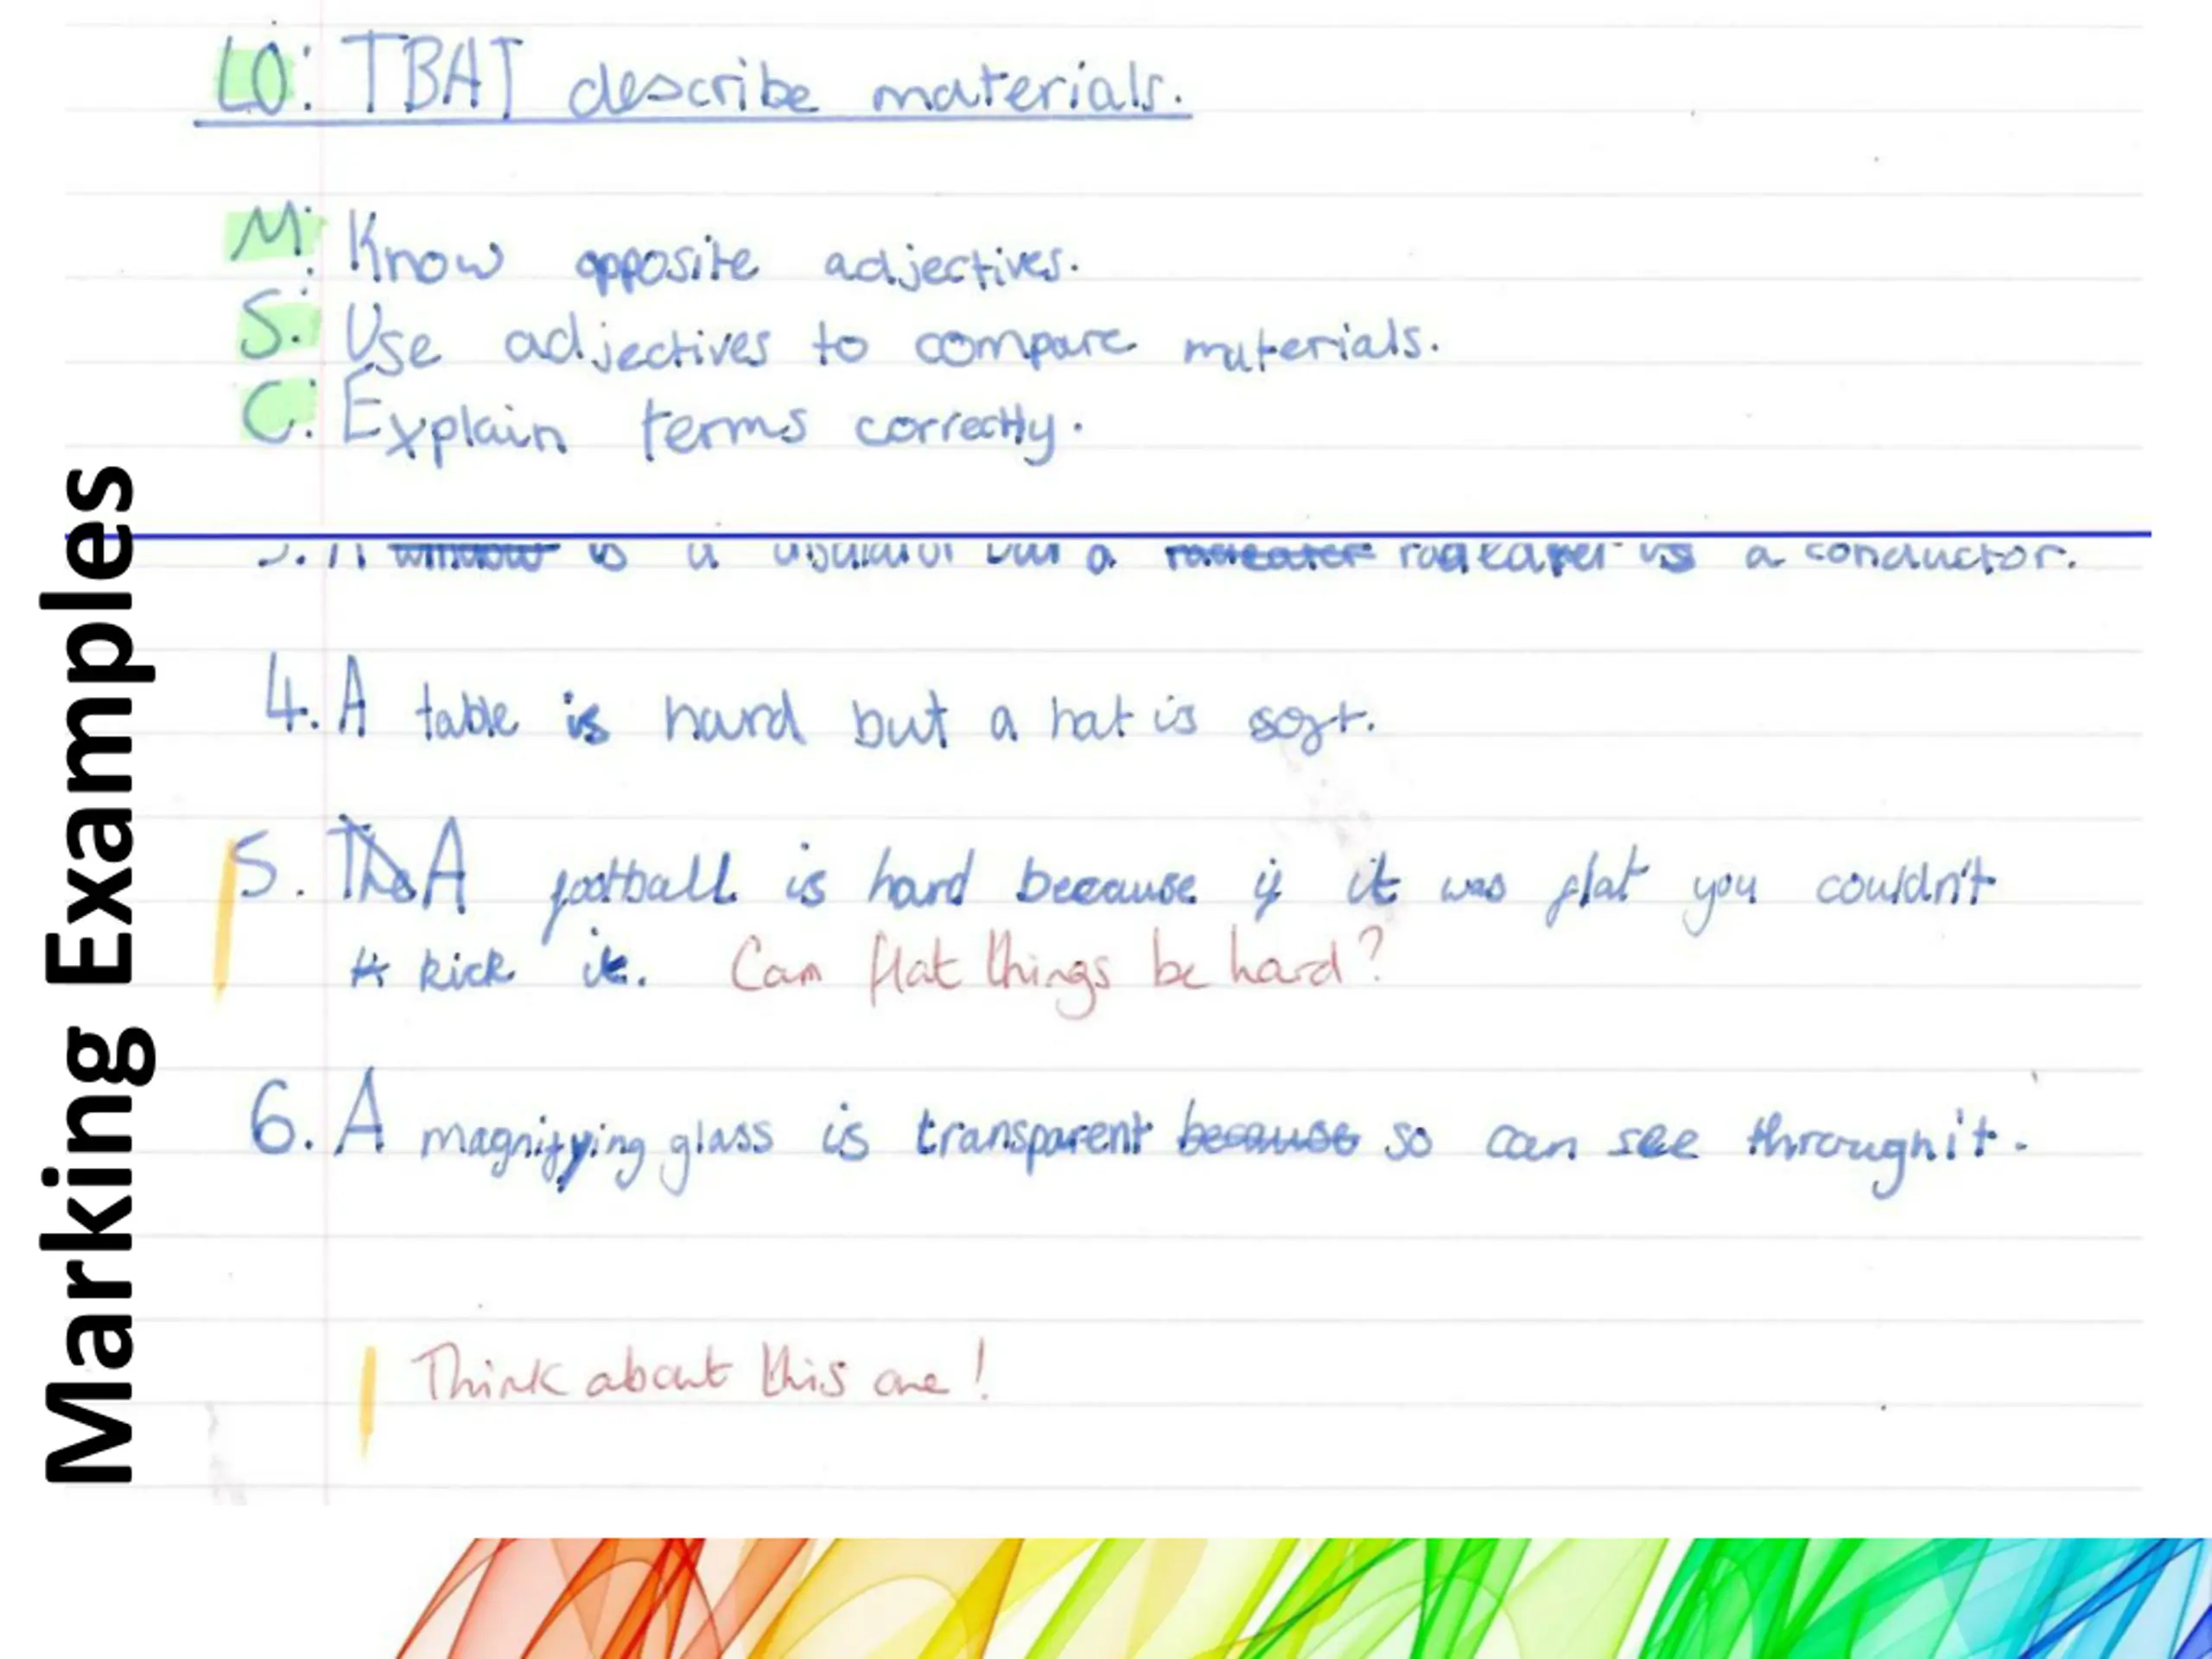 Marking Examples
LO: TBAT describe materials.
M: Know opposite adjectives.
S: Use adjectives to compare materials.
C: Explain terms correctly.
a conductor.
4. A table is hard but a hat is soft.
5. The A football is hard because if it was flat you couldn't
kick it. Can flat things be hard?
6. A magnifying glass is transparent because so can see through it.
Think about this one!